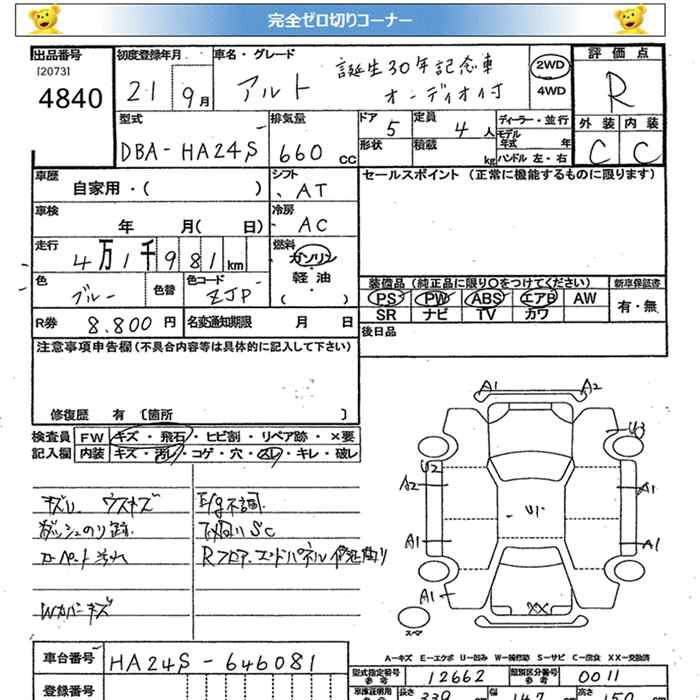 完全ゼロ切りコーナー
出品番号 初度登録年月 車名・グレード 評価点
[2073] 誕生30年記念車 2WD
4840 21 9月 アルト オーディオ付 4WD R
型式 排気量 ドア 定員 ディーラー・並行 外装 内装
DBA-HA24S 660 cc 5 4 人 モデル年式 年 C C
形状 積載 kg ハンドル 左・右
車歴 シフト セールスポイント (正常に機能するものに限ります)
自家用・( ) AT
車検 冷房
年 月( 日) AC
走行 燃料
4万1千981km ガソリン
軽油
色 色替 色コード ( ) 装備品 (純正品に限り○をつけてください) 新車保証書
ブルー ZJP PS PW ABS エアB AW 有・無
SR ナビ TV カワ
R券 8.800円 名変通知期限 月 日 後日品
注意事項申告欄(不具合内容等は具体的に記入して下さい)
修復歴 有 〔箇所 〕
検査員 FW キズ・飛石・ヒビ割・リペア跡・×要
記入欄 内装 キズ・汚レ・コゲ・穴・スレ・キレ・破レ
キズU ウスキズ E/g不調
ダッシュのり跡 下回りSC
カーペット汚れ Rフロア、エンドパネル修正有り
Wカバーキズ
A1 A2
U3
U2
A2 A1
U1
A1 A1
A1
XX
スペア
A-キズ E-エクボ U-凹み W-補修跡 S-サビ C-腐食 XX-交換済
車台番号 HA24S-646081
型式指定番号 参考 12662 類別区分番号 参考 0011
登録番号 車庫証明用 参考 長さ 339 cm 幅 147 cm 高さ 150 cm